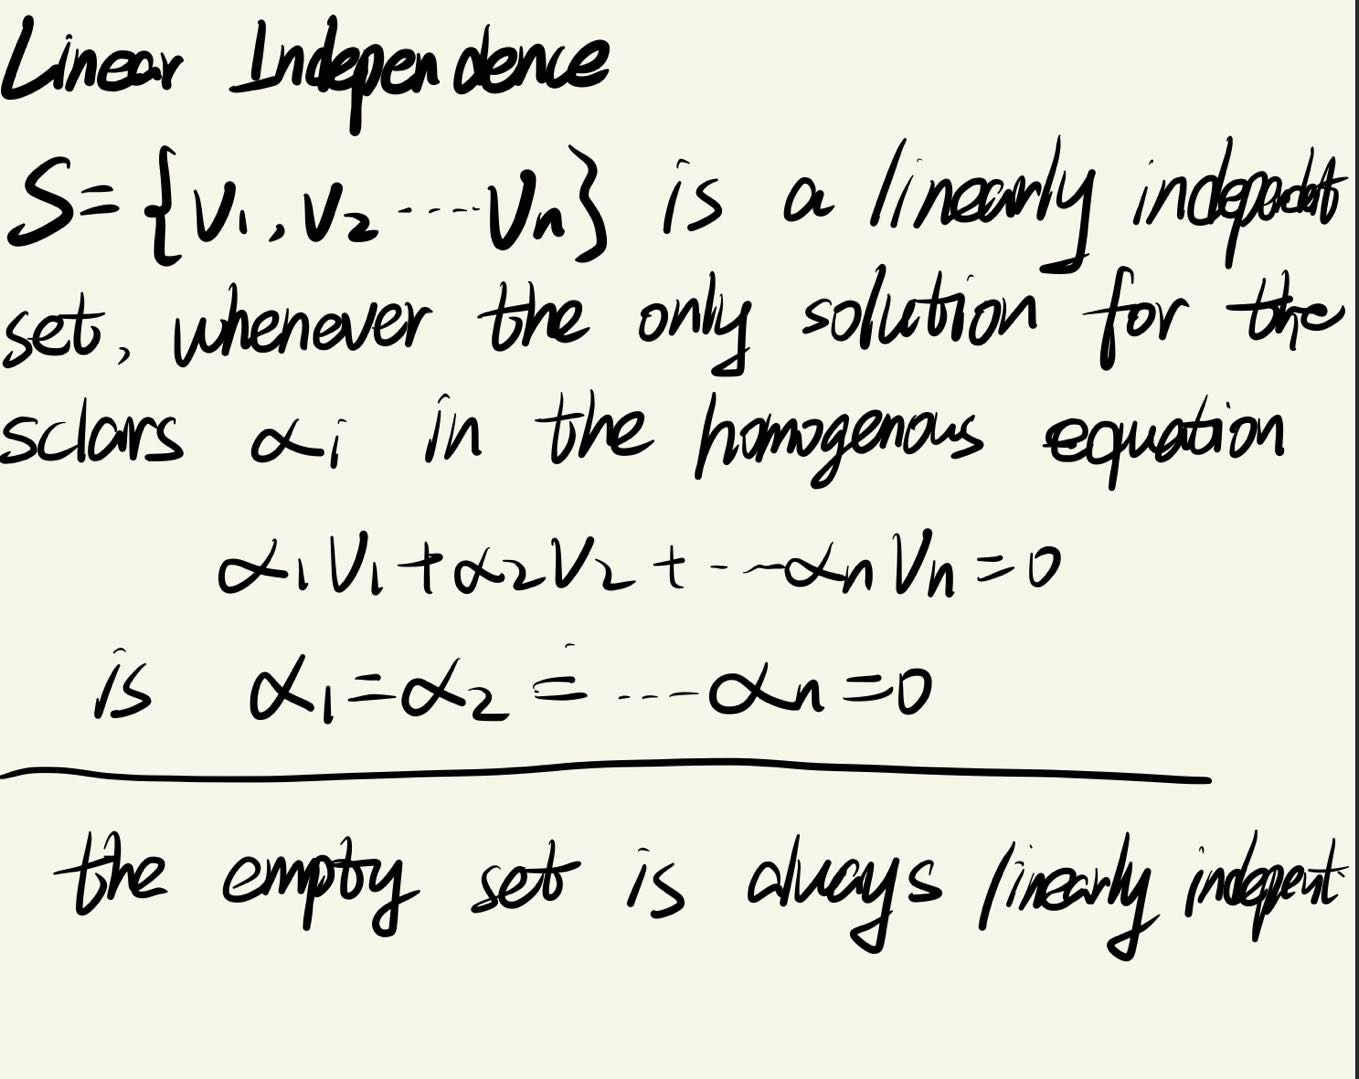 Linear Independence
S={v₁,v₂ ---- vₙ} is a linearly indepedet
set, whenever the only solution for the
sclars αi in the homogenous equation
α₁V₁+α₂V₂+ ---αₙVₙ=0
is α₁=α₂= ----αₙ=0
the empty set is always linearly indepent